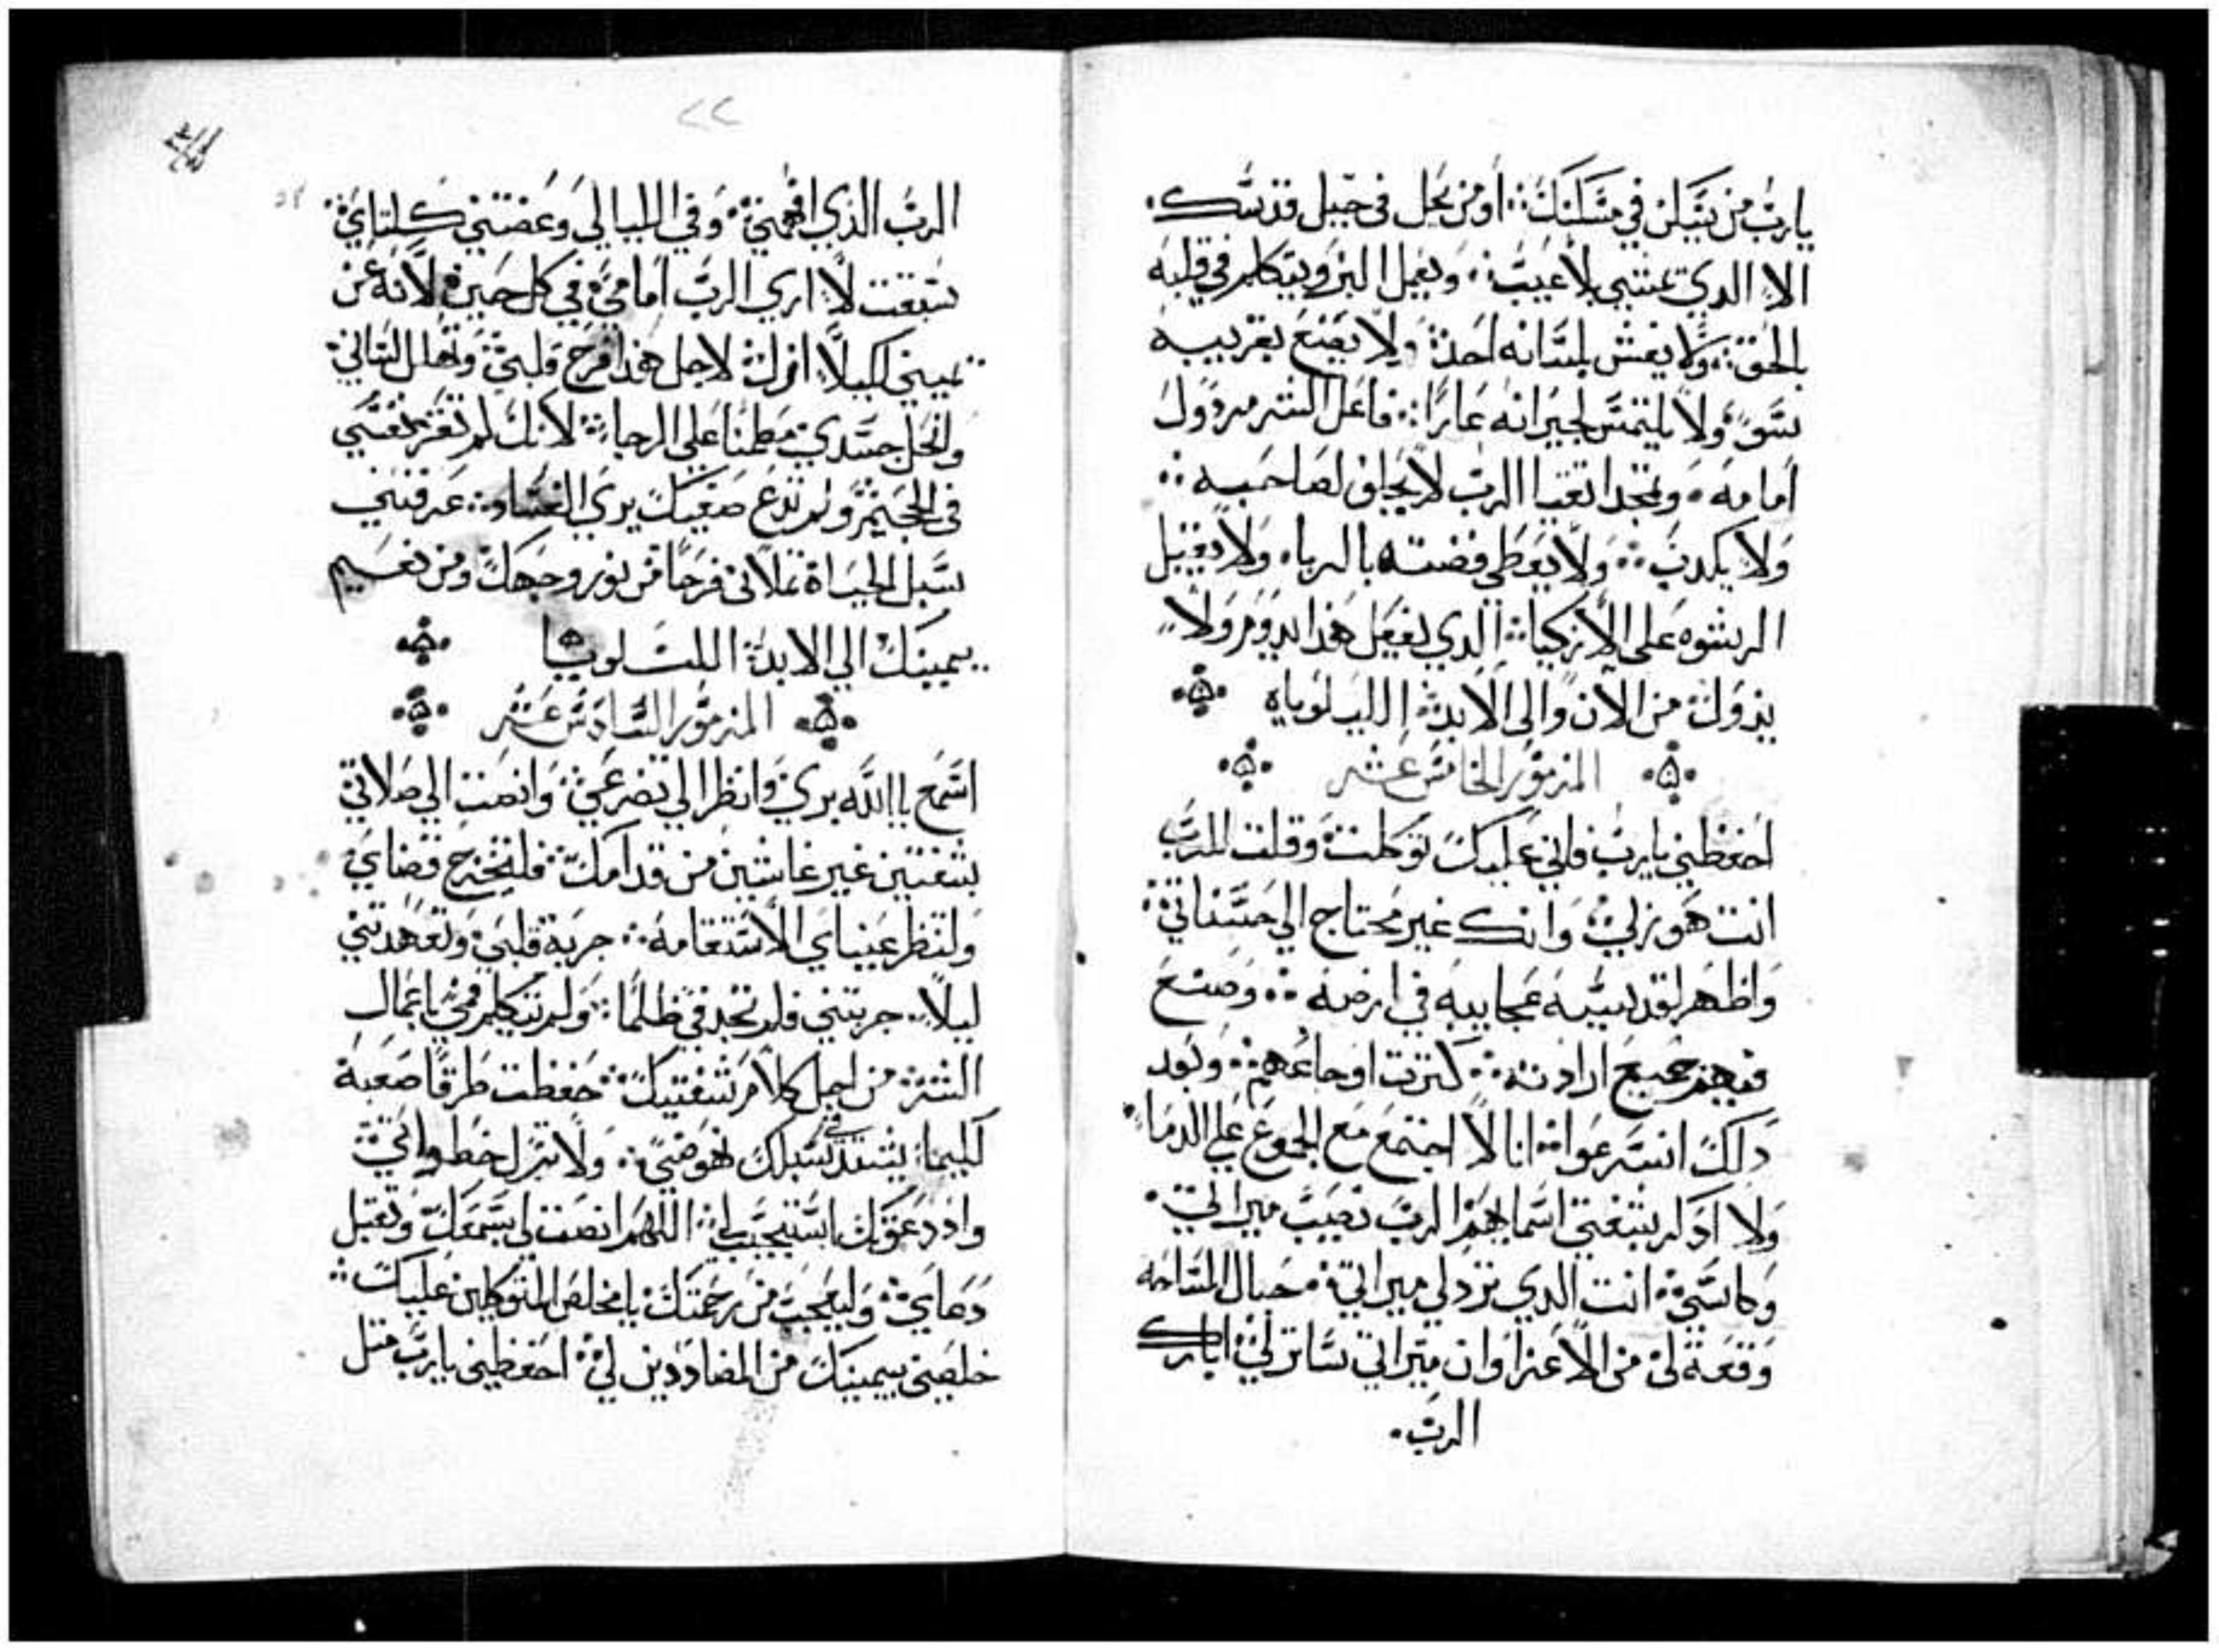 يارب من يسكن في مسكنك أو من يحل في جبل قدسك
الا الدي يمشي بلا عيب ويعمل البر ويتكلم في قلبه
بالحق ولا يغش بلسانه احد ولا يصنع بقريبه
سو ولا يلتمس لجيرانه عارًا فاعل الشر مردول
أمامه ويمجد اتقيا الرب لا يحلف لصاحبه
ولا يكدب ولا يعطي فضته بالربا ولا يقبل
الرشوه على الأزكيا الدي يفعل هذا يدوم ولا
يزول من الآن والى الابد الليلوياه
المزمور الخامس عشر
احفظني يارب فاني عليك توكلت وقلت للرب
انت هو زلي وانك غير محتاج الي حسناتي
واظهر لقديسيه عجايبه في ارضه وصنع
فيهم جميع ارادته كترت اوجاعهم وبعد
دلك اسرعوا انا لا اجتمع مع الجموع علي الدما
ولا ادكر بشفتي اسمايهم الرب نصيب ميراتي
وكاسي انت الدي ترد لي ميراتي حبال المساحه
وقعة لي من الاعزا وان ميراتي ساتر لي ابارك
الرب
٢٢
الرب الذي افهمني وفي الليالي وعضتني كلتاي
سبقت لا اري الرب امامي في كل حين لانه عن
يميني لكيلا ازل لاجل هذا فرح قلبي وتهلل لساني
وانحل جسدي مطمنا علي الرجا لانك لم تغز نفسي
في الجحيم ولم تدع صفيك يري الفساد عرفتني
سبل الحياة تملاني فرحا من نور وجهك ومن نعيم
يمينك الي الابد الليلويا
المزمور السادس عشر
اسمع ياالله بري وانظر الي تضرعي وانصت الي صلاتي
بشفتين غير غاشين من قدامك فليخرج قضاي
ولتنظر عيناي الاستقامه جربة قلبي وتعهدتني
ليلا جربتني فلم تجد في ظلما ولم يتكلم فمي باعمال
الشر من اجل كلام شفتيك حفظت طرقا صعبة
لكيما يشتد في سبلك نهوضي ولا تزل خطواتي
واد دعوتك استجيب لي اللهم انصت لي بسمعك وتقبل
دعاي وليعجب من رحمتك يا مخلص المتوكلين عليك
خلصني بيمينك من المضاددين لي احفظني يارب متل